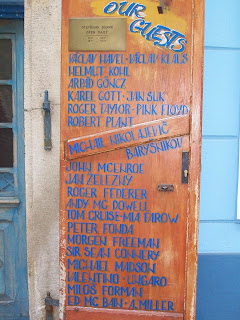 OUR
GUESTS
VÁCLAV HAVEL - VÁCLAV KLAUS
HELMUT KOHL
ARPÁD GÖNCZ
KAREL GOTT - JAN SUK
ROGER TAYLOR - PINK FLOYD
ROBERT PLANT
MICHAIL NIKOLAJEVIČ
BARYSNIKOV
JOHN MCENROE
JAN ŽELEZNÝ
ROGER FEDERER
ANDY MC DOWELL
TOM CRUISE - MIA FAROW
PETER FONDA
MORGEN FREEMAN
SIR SEAN CONNERY
MICHAEL MADSON
VALENTINO - UNGARO
MILOŠ FORMAN
ED MC BAIN - A. MILLER